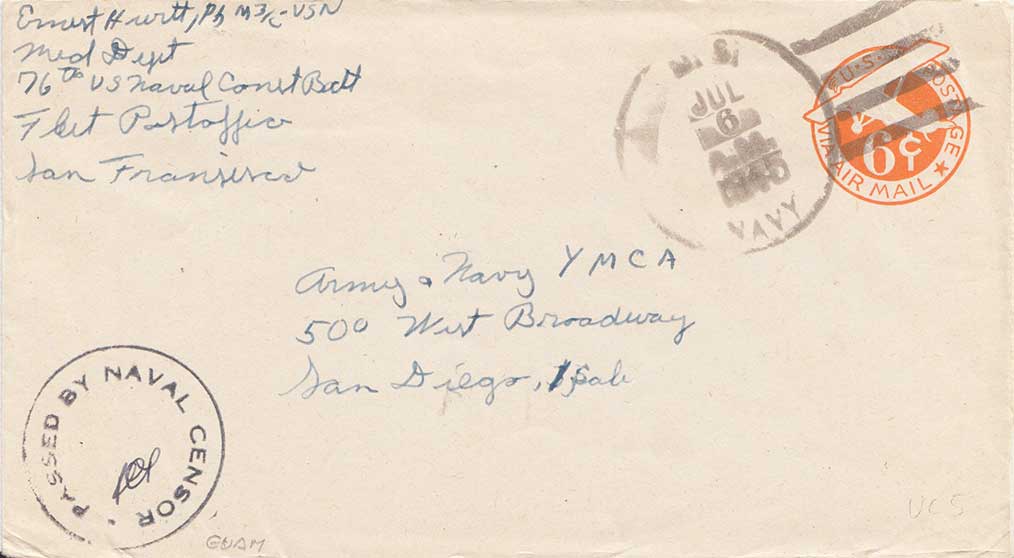 Ernest Hwitt, Ph M 3/c - USN
Med Dept
76th US Naval Const Batt
Fleet Postoffice
San Fransisco
U.S.
JUL
6
A.M.
1945
NAVY
U.S. POSTAGE
6¢
VIA AIR MAIL
Army & Navy YMCA
500 West Broadway
San Diego, Calif
PASSED BY NAVAL CENSOR
GUAM
UC5